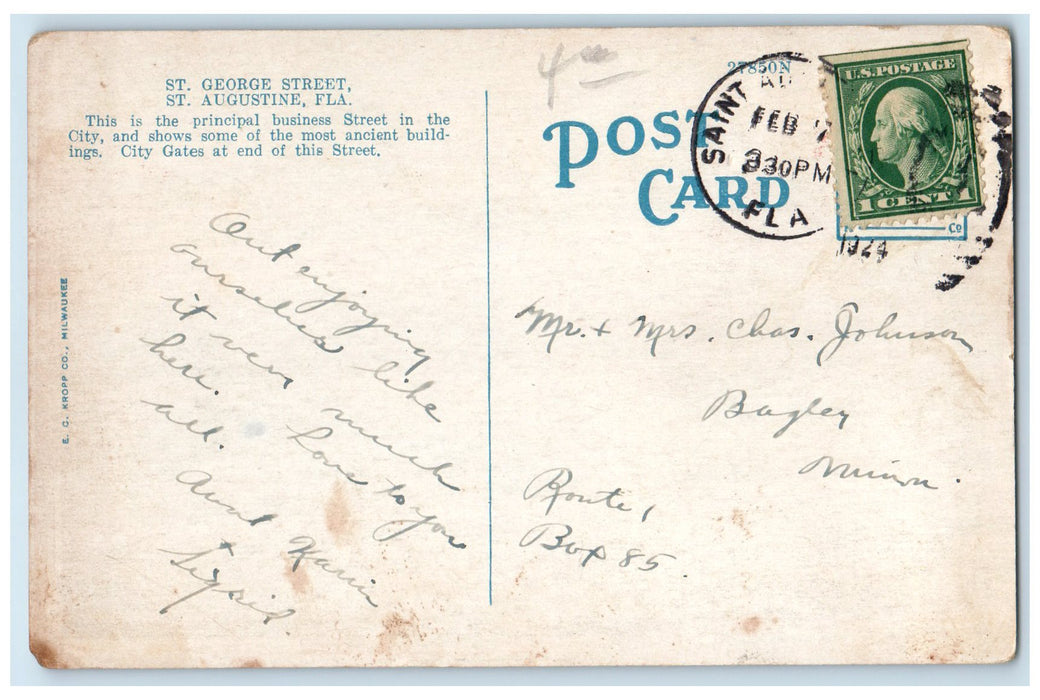 ST. GEORGE STREET,
ST. AUGUSTINE, FLA.
This is the principal business Street in the
City, and shows some of the most ancient build-
ings. City Gates at end of this Street.
E. C. KROPP CO., MILWAUKEE
Out enjoying
ourselves like
it very much
here. Love to you
all.
Aunt Karin
Sigrid.
27850N
POST
CARD
SAINT AU
FEB 7
330PM
FLA
1924
U.S. POSTAGE
1 CENT
Co
Mr. + Mrs. Chas. Johnson
Bagley
Minn.
Route 1
Box 85.